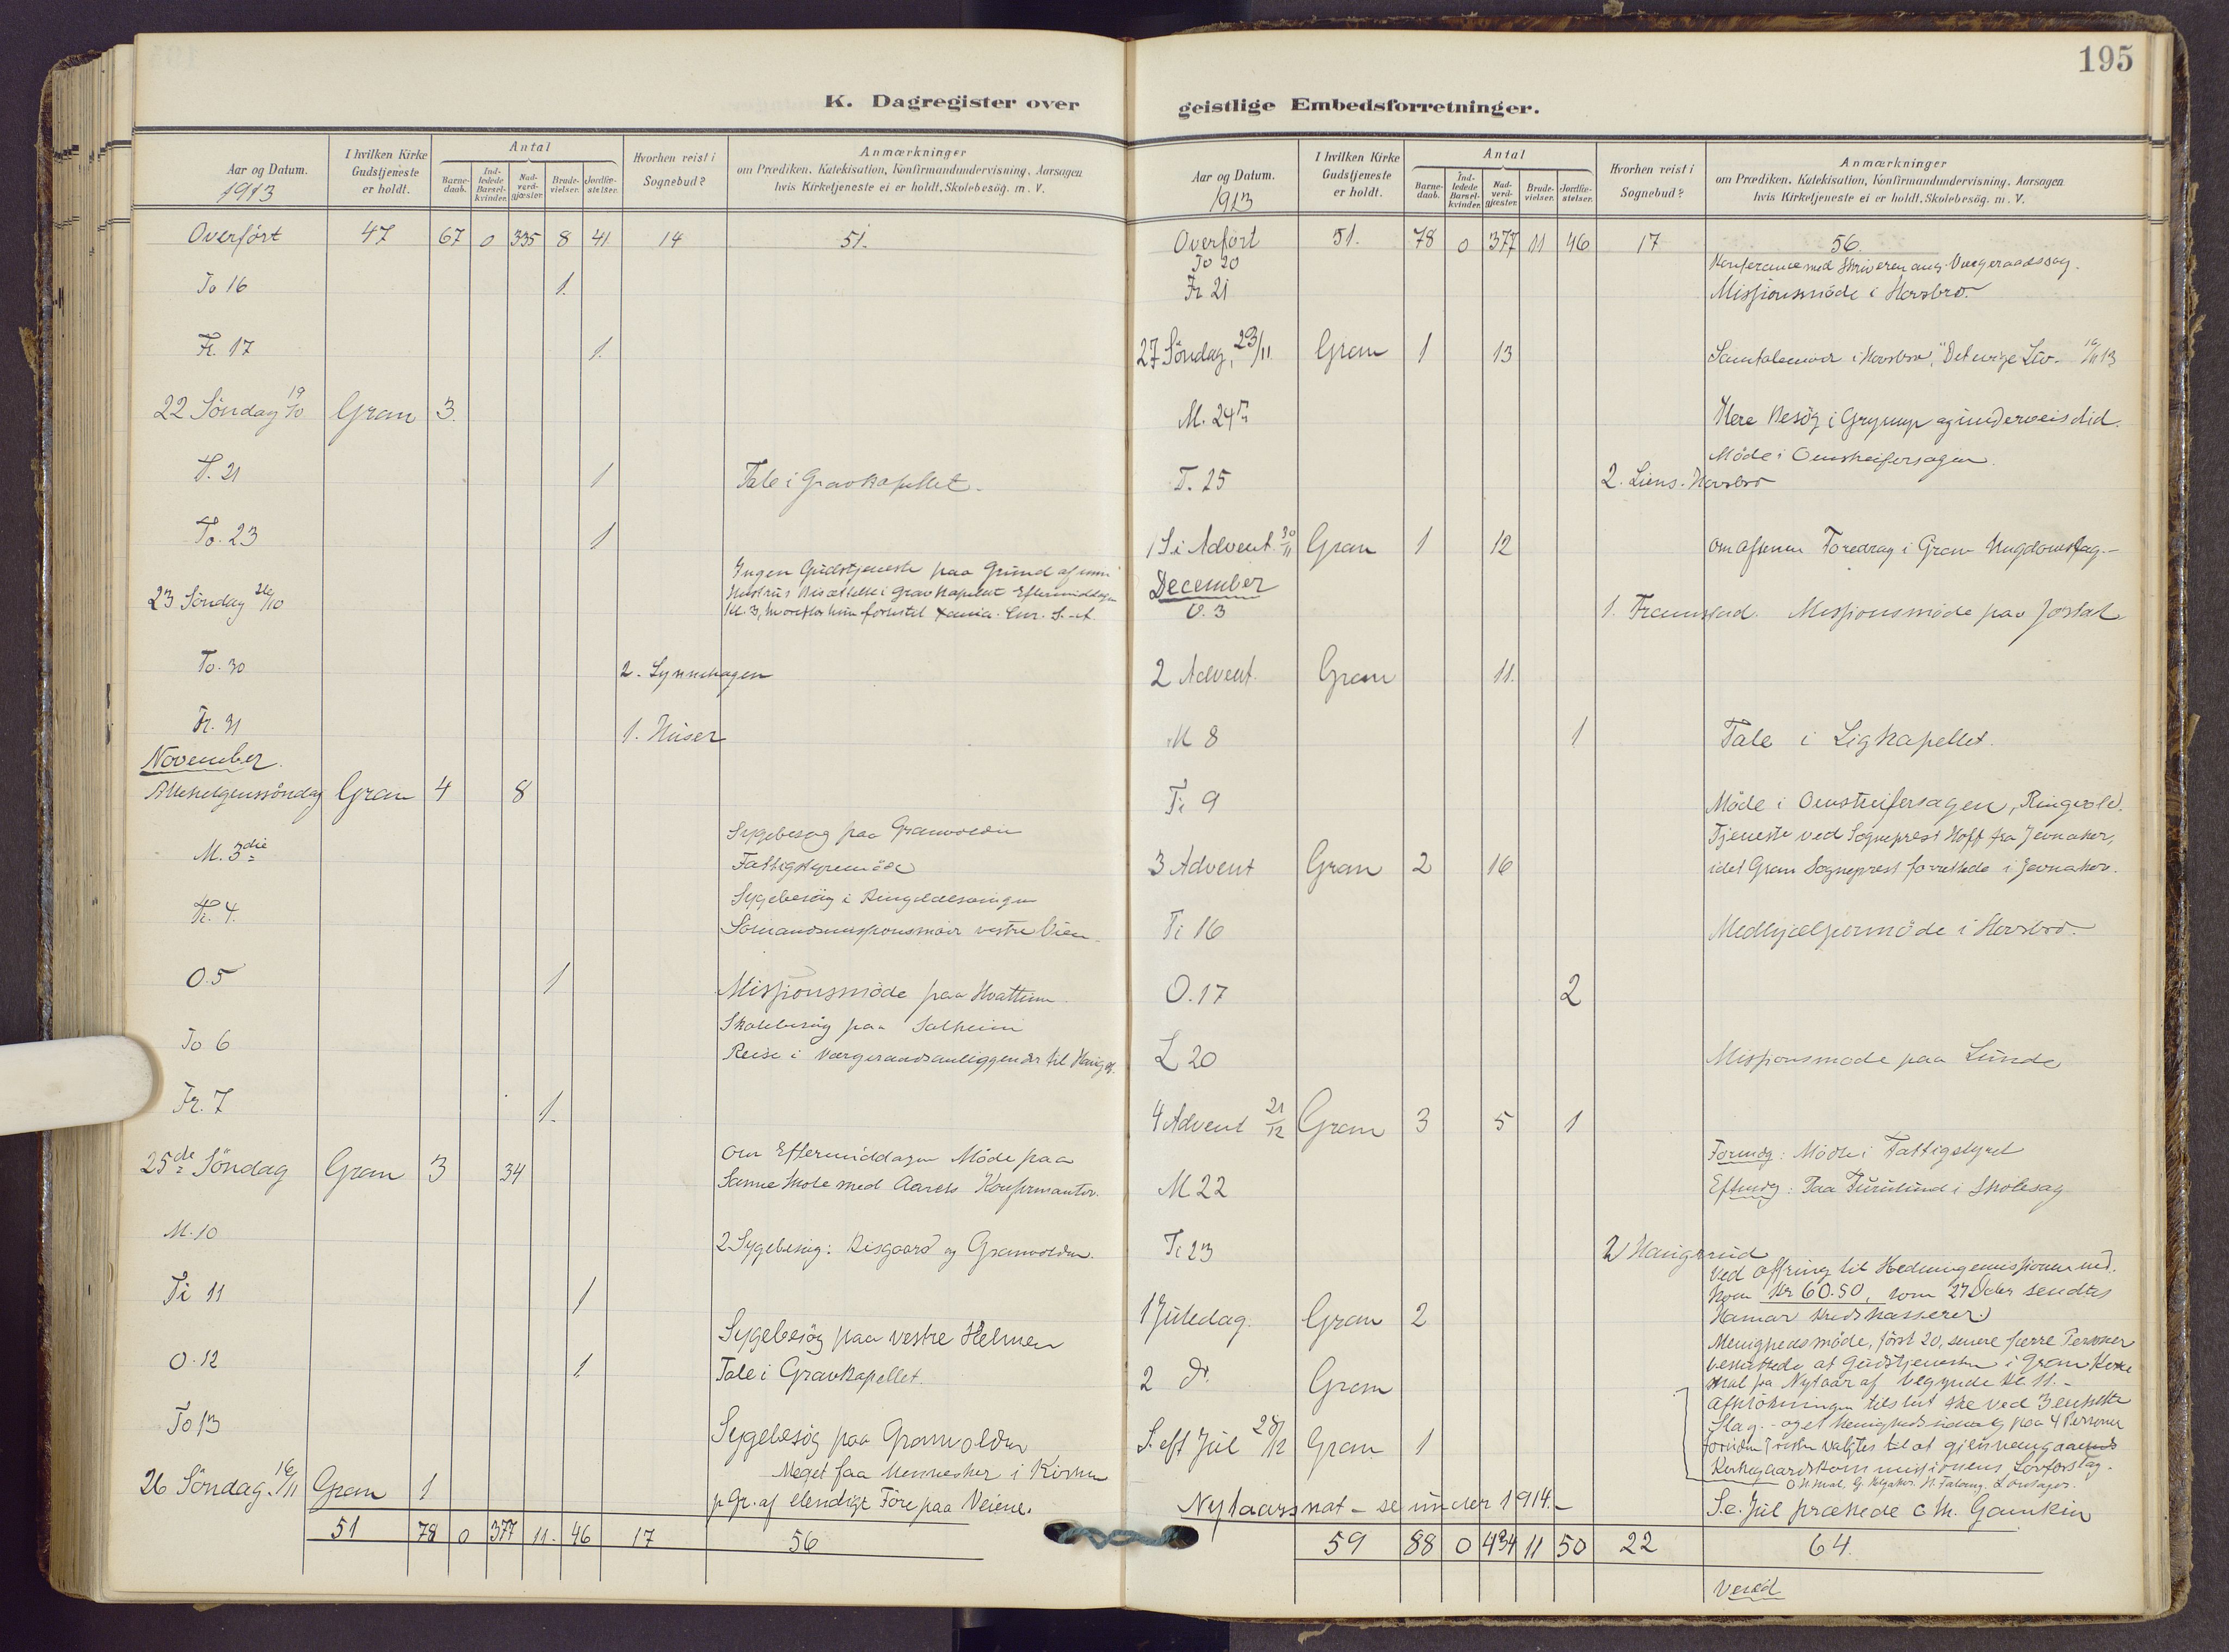 195
K. Dagregister over
geistlige Embedsforretninger.
Aar og Datum.
1913
I hvilken Kirke Gudstjeneste er holdt.
Antal
Barnedaab.
Indledede Barselkvinder.
Nadverdgjæster.
Brudevielser.
Jordfæstelser.
Hvorhen reist i Sognebud?
Anmærkninger
om Prædiken, Katekisation, Konfirmandundervisning, Aarsagen
hvis Kirketjeneste ei er holdt, Skolebesög. m. V.
Overført 47 67 0 335 8 41 14 51.
To 16 1.
Fr. 17 1.
22 Söndag 19/10 Gran 3.
T. 21 1 Tale i Gravkapellet.
To. 23 1
Ingen Gudstjeneste paa Grund af min
23 Söndag 26/10 Hustrus Bisættelse i Gravkapellet Eftermiddagen
Kl. 3, hvorefter
To. 30 2. Lynnehagen
Fr. 31 1. Huser
November.
Allehelgenssöndag Gran 4 8
Sygebesøg paa Granvolden
M. 3die Fattigstyremöde
Sygebesög i
Ti. 4. vestre
O. 5 1 Missionsmöde paa Hvattum
Skolebesög paa Solheim
To 6 Reise i Værgeraadsanliggender til
Fr. 7 1.
25de Söndag Gran 3 34 Om Eftermiddagen Möde paa
Sanne Skole med Aarets Konfirmanter.
M. 10 2 Sygebesög: Risgaard og Granvolden.
Ti 11 1
Sygebesög paa vestre Helmen
O. 12 1 Tale i Gravkapellet.
To 13 Sygebesög paa Granvolden
Meget faa Mennesker i Kirken
26 Söndag. 16/11 Gran 1 p Gr. af elendigt Före paa Veiene.
51 78 0 377 11. 46 17 56
Aar og Datum.
1913
I hvilken Kirke Gudstjeneste er holdt.
Antal
Barnedaab.
Indledede Barselkvinder.
Nadverdgjæster.
Brudevielser.
Jordfæstelser.
Hvorhen reist i Sognebud?
Anmærkninger
om Prædiken, Katekisation, Konfirmandundervisning, Aarsagen
hvis Kirketjeneste ei er holdt, Skolebesög. m. V.
Overført 51. 78 0 377 11 46 17 56.
To 20 Konferance med Skriveren ang. Værgeraadssag.
Fr 21 Missionsmöde i Hovsbro.
27 Söndag, 23/11 Gran 1 13 Samtalemöde i Hovsbro, "Det evige Liv-
M. 24 Flere Besög i Grymyr og underveis did.
Möde i
T. 25 2. Liens. Hovsbro
1 S. i Advent 30/11 Gran 1 12 Om Aftenen Foredrag i Gran Ungdomslag.-
December
O. 3 1. Framstad. Missionsmöde paa
2 Advent. Gran 11.
M 8 1 Tale i Ligkapellet.
Ti 9 Möde i Ringvold.
Tjeneste ved Sogneprest Hoff fra Jevnaker,
3 Advent Gran 2 16 idet Gran Sogneprest forrettede i Jevnaker.
Ti 16 Medhjælpermöde i Hovsbro.
O. 17 2
L 20 Missionsmøde paa Lunde
4 Advent 21/12 Gran 3 5 1
Formdg: Möde i Fattigstyret
M 22 Eftmdg: Paa Furulund i Skolesag
Ti 23 2) Haugsrud
Ved Offring til Hedningemissionen ind-
kom Kr 60.50, som 27 Dcbr sendtes
1 Juledag. Gran 2 Hamar Kredskasserer.)
Menighedsmöde, först 20, senere færre Personer
besluttede at Gudstjenesten i Gran Kirke
2 Dr. Gran skal fra Nytaar af begynde Kl. 11.-
tilslut ske ved 3 enkelte
Slag.- og et paa 4 Personer
S. eft Jul 28/12 Gran 1 valgtes til at gjennemgaaende
Kirkegaardskommissionens Lovforslag.
Nytaarsnat - se under 1914.- S. e. Jul prækede
59 88 0 434 11 50 22 64.